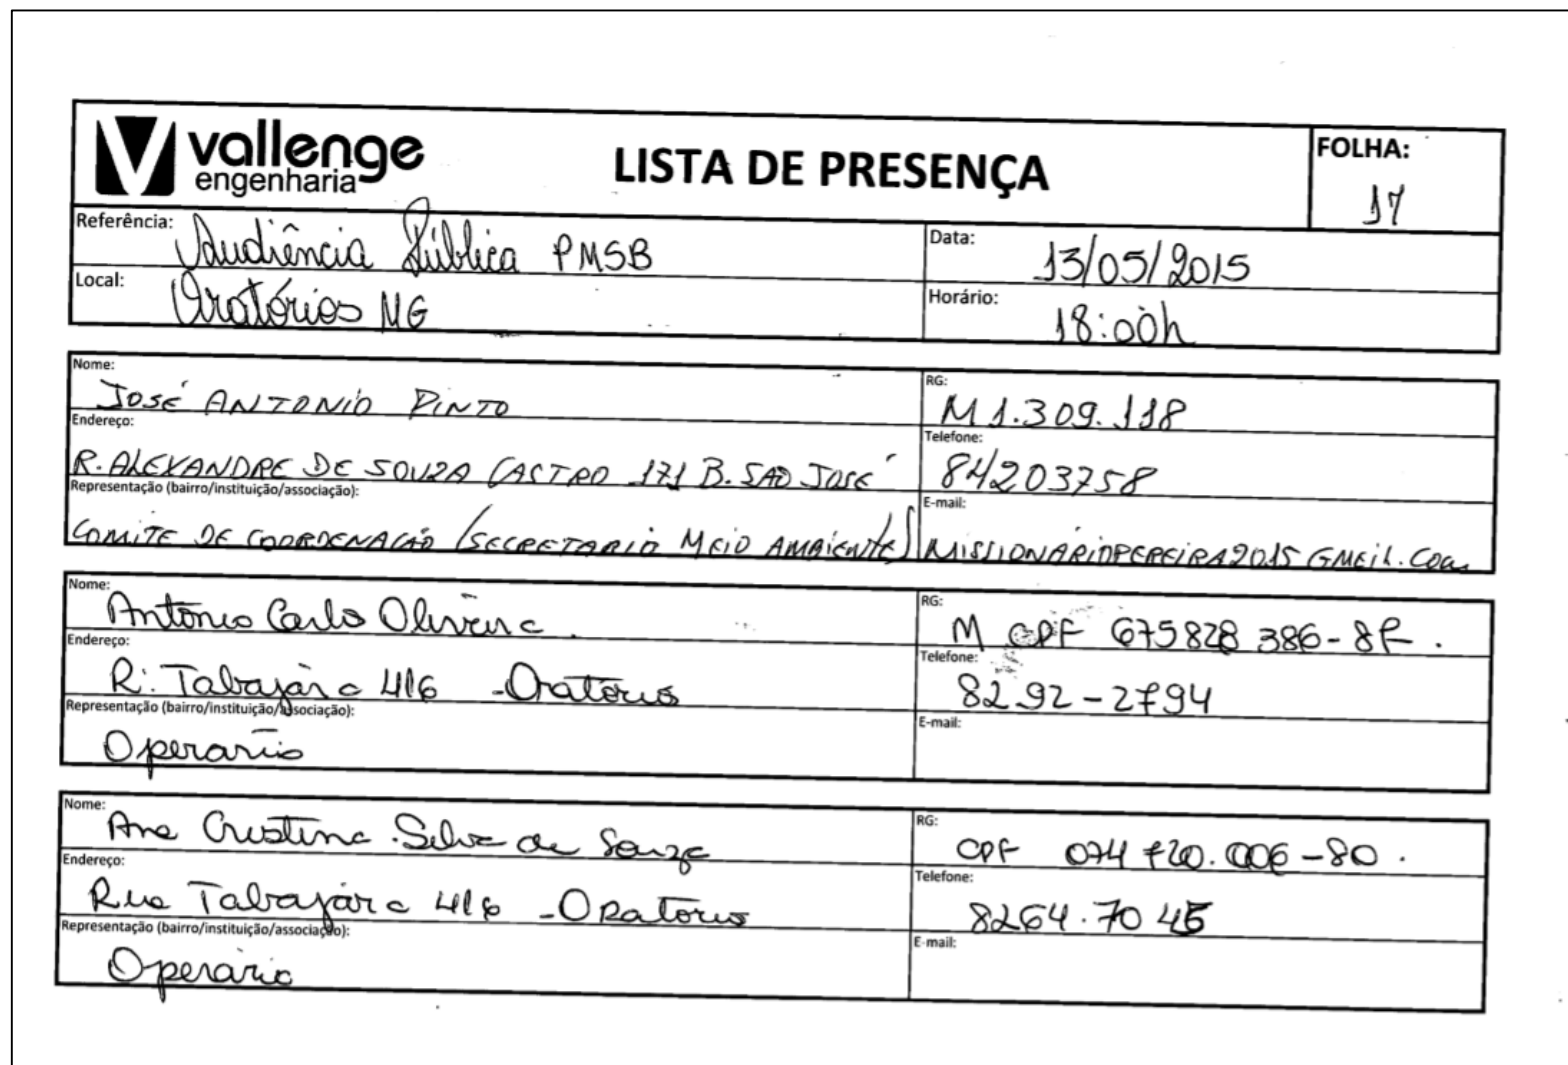 vallenge
engenharia
LISTA DE PRESENÇA
FOLHA:
17
Referência: Audiência Pública PMSB
Data: 13/05/2015
Local: Oratórios MG
Horário: 18:00h
Nome: JOSÉ ANTONIO PINTO
RG: M 1.309.118
Endereço: R. ALEXANDRE DE SOUZA CASTRO 171 B. SAO JOSÉ
Telefone: 84203758
Representação (bairro/instituição/associação): COMITE DE COORDENAÇÃO (SECRETARIO MEIO AMBIENTE)
E-mail: MISSIONARIOPEREIRA2015 GMEIL.COM
Nome: Antonio Carlo Oliveira
RG: M CPF 675828 386-8
Endereço: R. Tabajára 416 - Oratorio
Telefone: 8292-2794
Representação (bairro/instituição/associação): Operario
E-mail:
Nome: Ana Cristina Silva de Souza
RG: CPF 074 720.006-80.
Endereço: Rua Tabajára 416 - Oratorio
Telefone: 8264.7045
Representação (bairro/instituição/associação): Operário
E-mail: